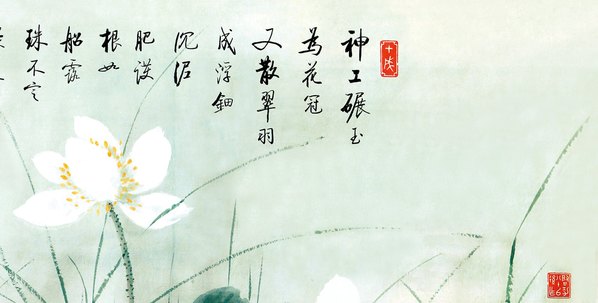 神工碾玉
為花冠
又散翠羽
成浮鈿
沉泥
肥護
根如
船露
珠不定